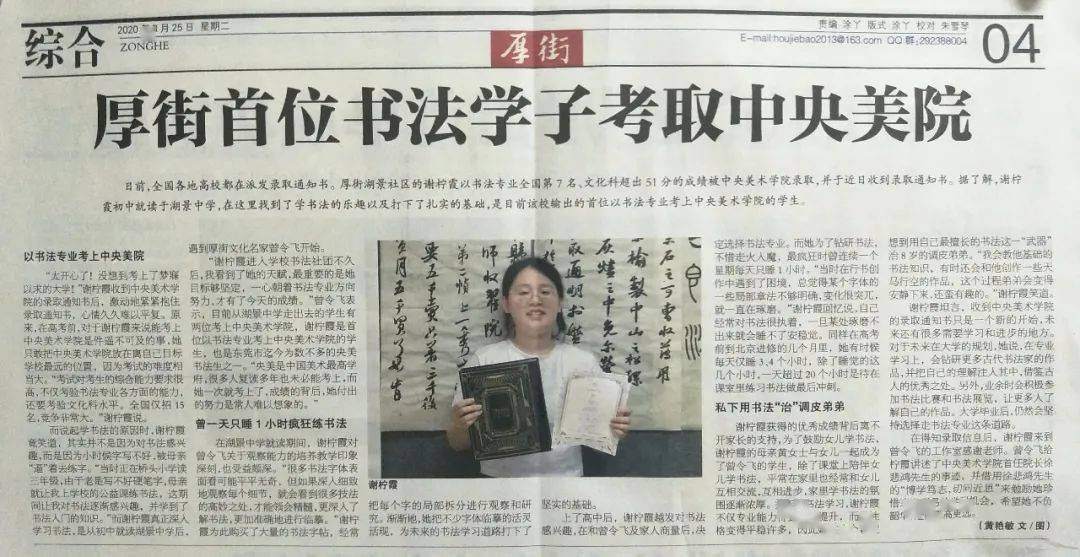 综合
2020年 月25日 星期二
ZONGHE
厚街
责编 涂丫 版式 涂丫 校对 朱雪琴
E-mail:houjiebao2013@163.com QQ群:292388004
04
厚街首位书法学子考取中央美院
日前,全国各地高校都在派发录取通知书。厚街湖景社区的谢柠霞以书法专业全国第7名、文化科超出51分的成绩被中央美术学院录取,并于近日收到录取通知书。据了解,谢柠
霞初中就读于湖景中学,在这里找到了学书法的乐趣以及打下了扎实的基础,是目前该校输出的首位以书法专业考上中央美术学院的学生。
以书法专业考上中央美院
“太开心了!没想到考上了梦寐
以求的大学!”谢柠霞收到中央美术学
院的录取通知书后,激动地紧紧抱住
录取通知书,心情久久难以平复。原
来,在高考前,对于谢柠霞来说能考上
中央美术学院是件遥不可及的事,她
只敢把中央美术学院放在离自己目标
学校最远的位置,因为考试的难度相
当大。“考试对考生的综合能力要求很
高,不仅考验书法专业各方面的能力,
还要考验文化科水平。全国仅招15
名,竞争非常大。”谢柠霞说。
而说起学书法的原因时,谢柠霞
竟笑道,其实并不是因为对书法感兴
趣,而是因为小时候字写不好,被母亲
“逼”着去练字。“当时正在桥头小学读
三年级,由于老是写不好硬笔字,母亲
就让我上学校的公益课练书法,这期
间让我对书法逐渐感兴趣,并学到了
书法入门的知识。”而谢柠霞真正深入
学习书法,是从初中就读湖景中学后,
遇到厚街文化名家曾令飞开始。
“谢柠霞进入学校书法社团不久
后,我看到了她的天赋,最重要的是她
目标够坚定,一心朝着书法专业方向
努力,才有了今天的成绩。”曾令飞表
示,目前从湖景中学走出去的学生有
两位考上中央美术学院,谢柠霞是首
位以书法专业考上中央美术学院的学
生,也是东莞市迄今为数不多的央美
书法生之一。“央美是中国美术最高学
府,很多人复读多年也未必能考上,而
她一次就考上了,成绩的背后,她付出
的努力是常人难以想象的。”
曾一天只睡1小时疯狂练书法
在湖景中学就读期间,谢柠霞对
曾令飞关于观察能力的培养教学印象
深刻,也受益颇深。“很多书法字体表
面看可能平平无奇,但如果深入细致
地观察每个细节,就会看到很多技法
的高妙之处,才能领会精髓,更深入了
解书法,更加准确地进行临摹。”谢柠
霞为此购买了大量的书法字帖,经常
谢柠霞
把每个字的局部拆分进行观察和研
究。渐渐地,她把不少字体临摹的活灵
活现,为未来的书法学习道路打下了
坚实的基础。
上了高中后,谢柠霞越发对书法
感兴趣,在和曾令飞及家人商量后,决
定选择书法专业。而她为了钻研书法,
不惜走火入魔,最疯狂时曾连续一个
星期每天只睡1小时,“当时在行书创
作中遇到了困境,总觉得某个字体的
一些局部章法不够明确,变化很突兀,
就一直在琢磨。”谢柠霞回忆说,自己
经常对书法很执着,一旦某处琢磨不
出来就会睡不了安稳觉。同样在高考
前到北京进修的几个月里,她有时候
每天仅睡3、4个小时,除了睡觉的这
几个小时,一天超过20个小时是待在
课室里练习书法做最后冲刺。
私下用书法“治”调皮弟弟
谢柠霞获得的优秀成绩背后离不
开家长的支持,为了鼓励女儿学书法,
谢柠霞的母亲黄女士与女儿一起成为
了曾令飞的学生,除了课堂上陪伴女
儿学书法,平常在家里也经常和女儿
互相交流,互相进步,家里学书法的氛
围逐渐浓厚。
不仅专业能力
格变得平稳许多,因此
想到用自己最擅长的书法这一“武器”
治8岁的调皮弟弟。“我会教他基础的
书法知识,有时还会和他创作一些天
马行空的作品,这个过程弟弟会变得
安静下来,还蛮有趣的。”谢柠霞笑道。
谢柠霞坦言,收到中央美术学院
的录取通知书只是一个新的开始,未
来还有很多需要学习和进步的地方。
对于未来在大学的规划,她说,在专业
学习上,会钻研更多古代书法家的作
品,并把自己的理解注入其中,借鉴古
人的优秀之处。另外,业余时会积极参
加书法比赛和书法展览,让更多人了
解自己的作品。大学毕业后,仍然会坚
持选择走书法专业这条道路。
在得知录取信息后,谢柠霞来到
曾令飞的工作室感谢老师。曾令飞给
谢柠霞讲述了中央美术学院首任院长徐
悲鸿先生的事迹,并借用徐悲鸿先生
的“博学笃志,切问近思”来勉励她珍
机会,希望她不负
(黄艳敏 文/图)